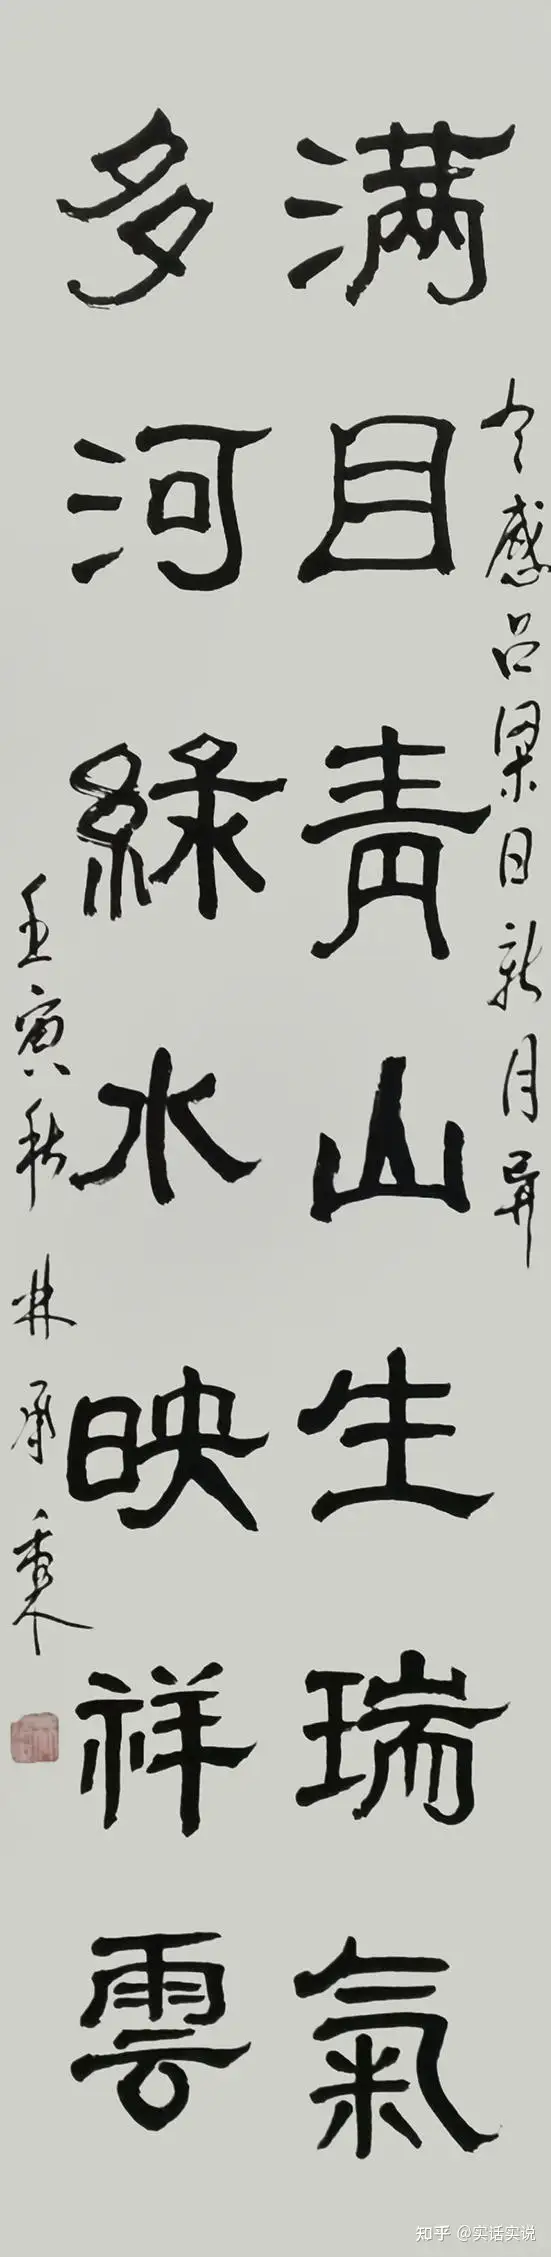 今感吕梁日新月异
满目青山生瑞氣
多河緑水映祥雲
壬寅秋 林承秉
知乎 @实话实说